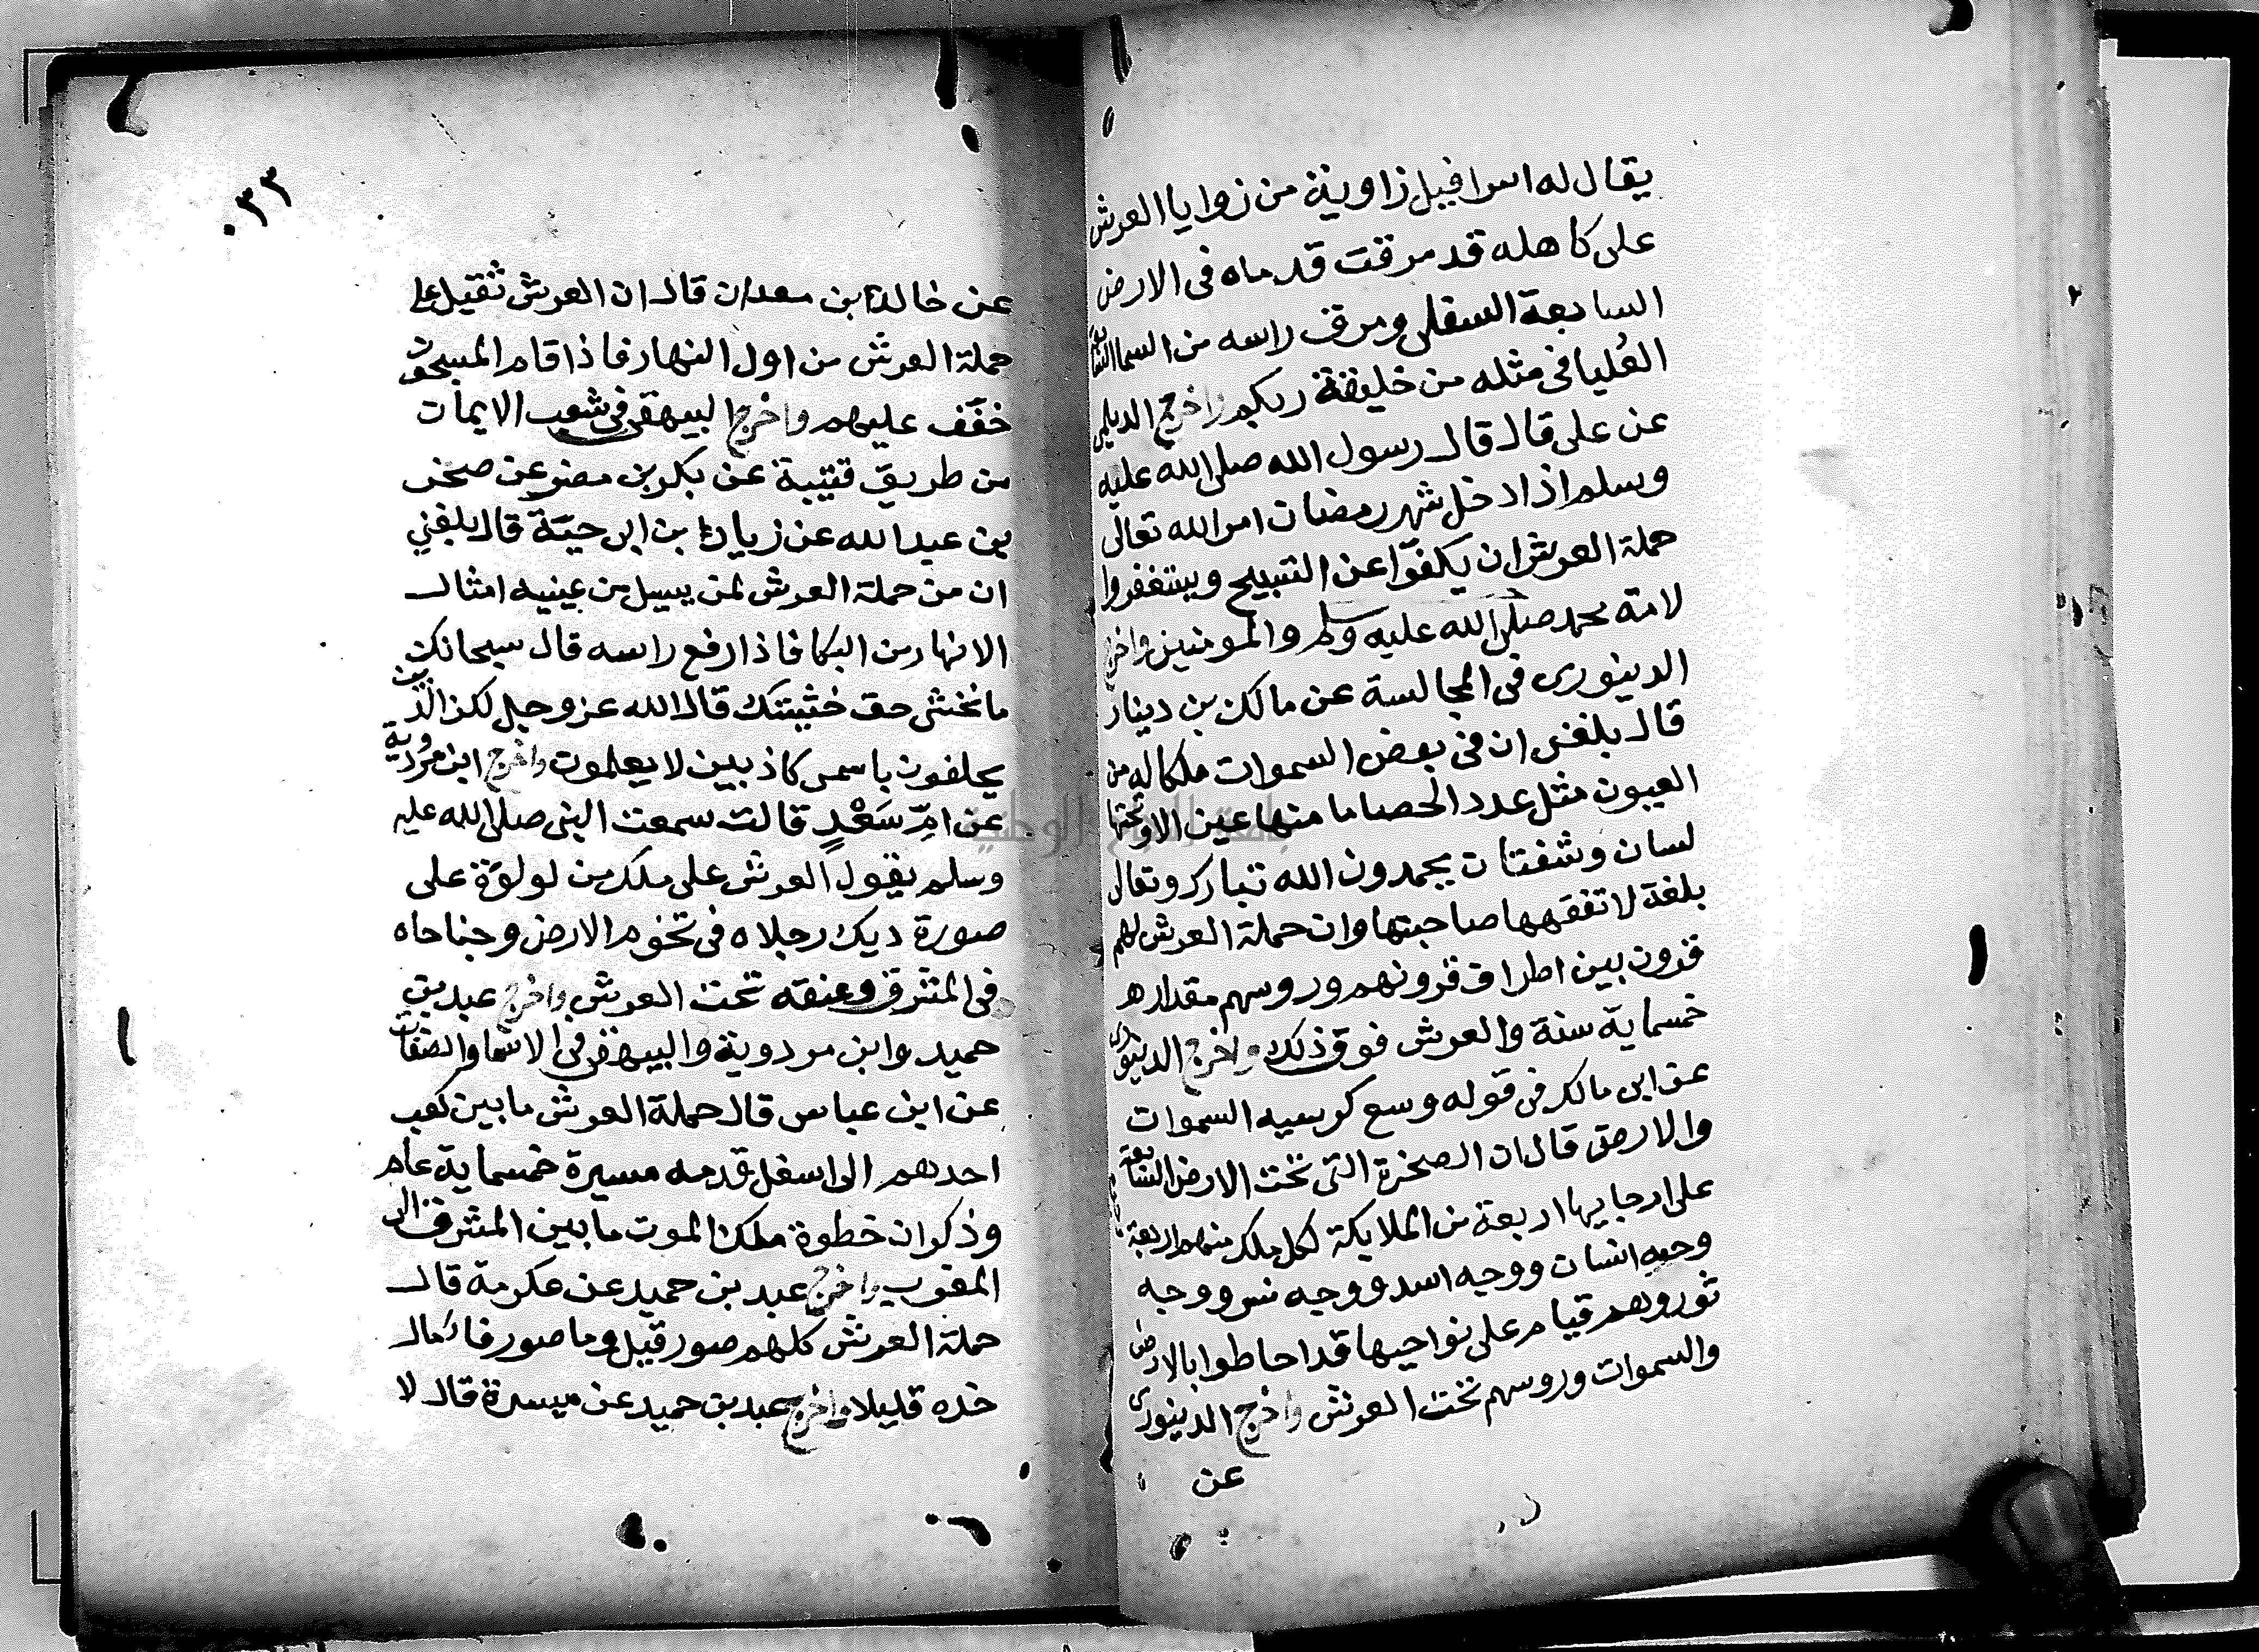 يقال له اسرافيل زاوية من زوايا العرش
على كاهله قد مرقت قدماه في الارض
السابعة السفلى ومرق راسه من السما السابعة
العُليا في مثله من خليقة ربكم واخرج الديلمي
عن على قال قال رسول الله صلى الله عليه
وسلم اذا دخل شهر رمضان امر الله تعالى
حملة العرش ان يكفوّا عن التسبيح ويستغفروا
لامة محمد صلى الله عليه وسلم والمومنين واخرج
الدينورى في المجالسة عن مالك بن دينار
قال بلغني ان في بعض السموات ملكا له من
العيون مثل عدد الحصا ما منها عين الا وتحتها
لسان وشفتان يحمدون الله تبارك وتعالى
بلغة لا تفقهها صاحبتها وان حملة العرش لهم
قرون بين اطراف قرونهم وروسهم مقداره
خمسماية سنة والعرش فوق ذلك واخرج الدينورى
عن ابى مالك في قوله وسع كرسيه السموات
والارض قال ان الصخرة التى تحت الارض السابعة
على ارجايها اربعة من الملايكة لكل ملك منهم اربعة
وجه انسان ووجه اسد ووجه نسر ووجه
ثور وهم قيام على نواحيها قد احاطوا بالارض
والسموات وروسهم تحت العرش واخرج الدينورى
عن
٠٣٣
عن خالد ابن معدان قال ان العرش ثقيل على
حملة العرش من اول النهار فاذا قام المسبحون
خفّف عليهم واخرج البيهقى في شعب الايمان
من طريق قتيبة عن بكر بن مضر عن صخر
بن عبد الله عن زياد بن ابى حيّة قال بلغني
ان من حملة العرش لمن يسيل من عينيه امثال
الانهار من البكا فاذا رفع راسه قال سبحانك
ما نخشى حق خشيتك قال الله عز وجل لكن الذين
يحلفون باسمى كاذبين لا يعلمون واخرج ابن مردوية
عن امّ سَعْدٍ قالت سمعت النبى صلى الله عليه
وسلم يقول العرش على ملك من لولوة على
صورة ديك رجلاه في تخوم الارض وجناحاه
في المشرق وعنقه تحت العرش واخرج عبد بن
حميد وابن مردوية والبيهقى في الاسما والصفات
عن ابن عباس قال حملة العرش ما بين كعب
احدهم الى اسفل قدمه مسيرة خمسماية عام
وذكر ان خطوة ملك الموت ما بين المشرق الى
المغرب واخرج عبد بن حميد عن عكرمة قال
حملة العرش كلهم صور قيل وما صور فامال
خده قليلا واخرج عبد بن حميد عن ميسرة قال لا